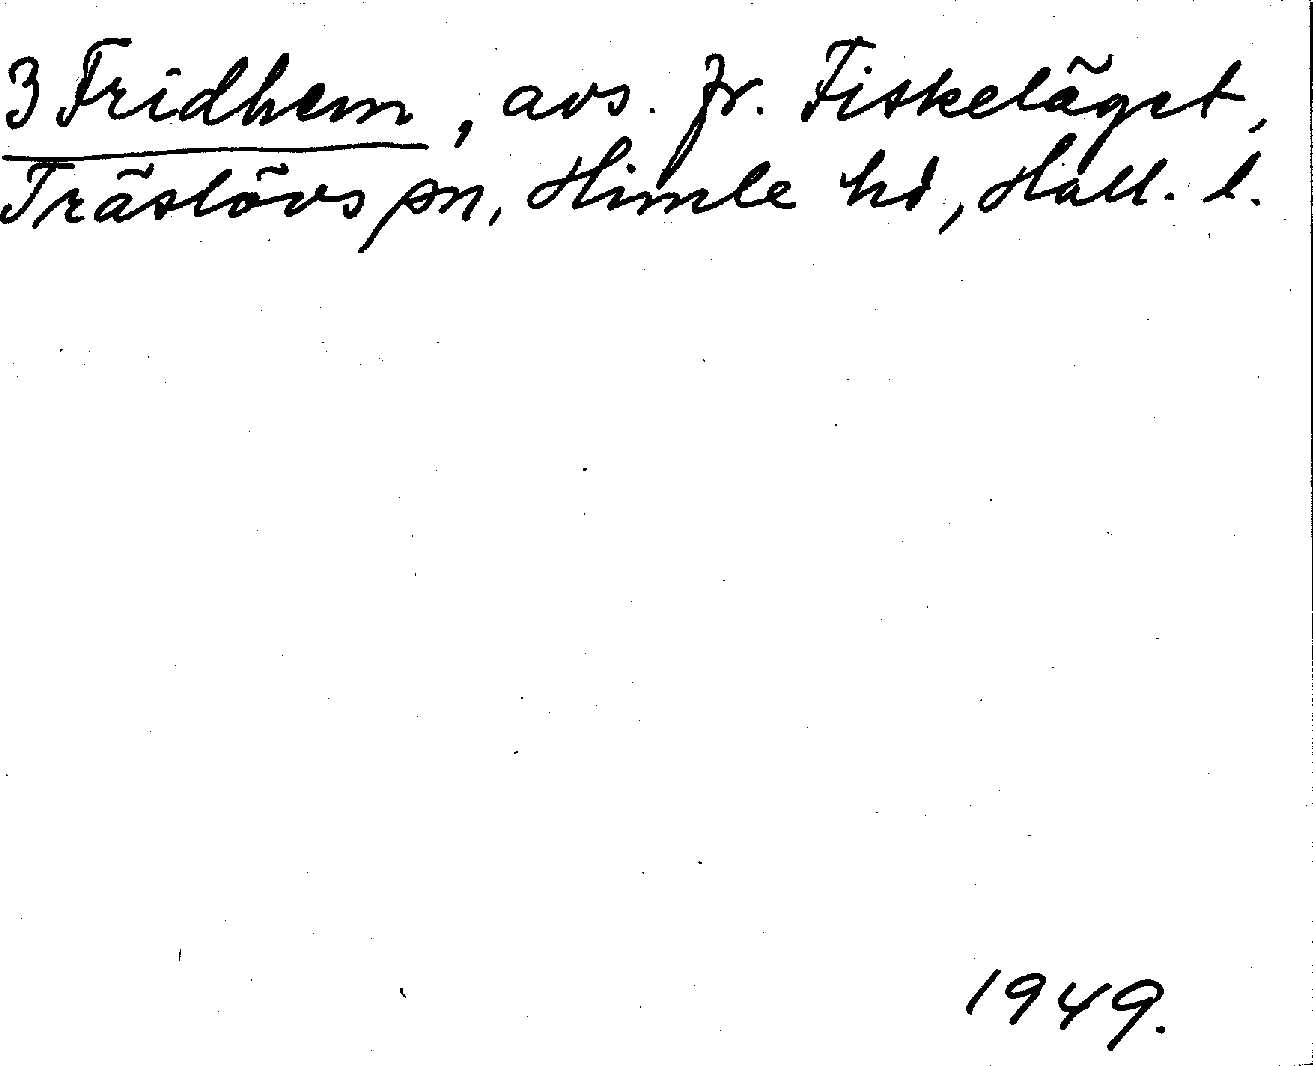 3 Fridhem, avs. fr. Fiskeläget,
Träslövs sn, Himle hd, Hall. l.
1949.